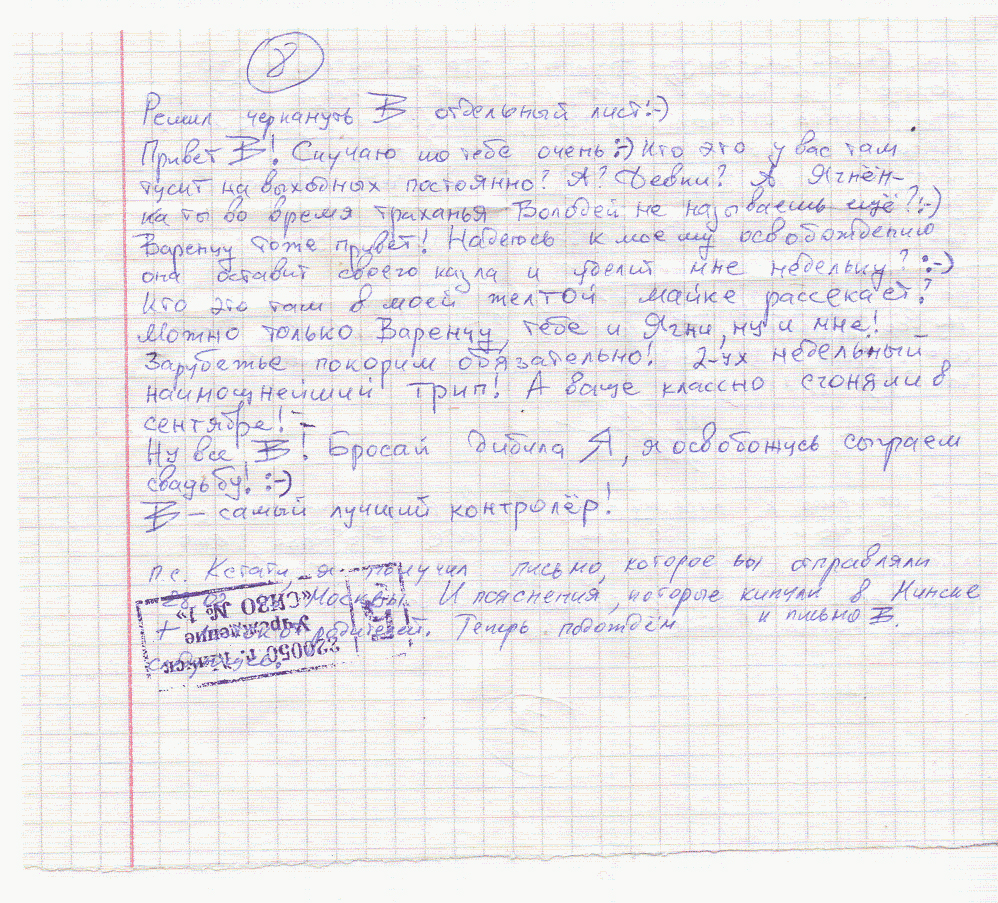 8
Решил черкануть В отдельный лист:-)
Привет В! Скучаю по тебе очень:-) Кто это у вас там
тусит на выходных постоянно? А? Девки? А Ягнён-
ка ты во время траханья Володей не называешь ещё?:-)
Варенцу тоже привет! Надеюсь к моему освобождению
она оставит своего казла и уделит мне недельку?:-)
Кто это там в моей желтой майке рассекает?
Можно только Варенцу, тебе и Ягни, ну и мне!
Зарубежье покорим обязательно! 2-ух недельный
наимощнейший трип! А ваще классно сгоняли в
сентябре!
Ну все В! Бросай дибила Я, я освобожусь сыграем
свадьбу! :-)
В – самый лучший контролёр!
п.с. Кстати, я получил письмо, которое вы отправляли
Москвы. И пояснения, которые кинули в Минске
+ Теперь подождём и письмо В.
220050 г. Минск
Учреждение
«СИЗО № 1»